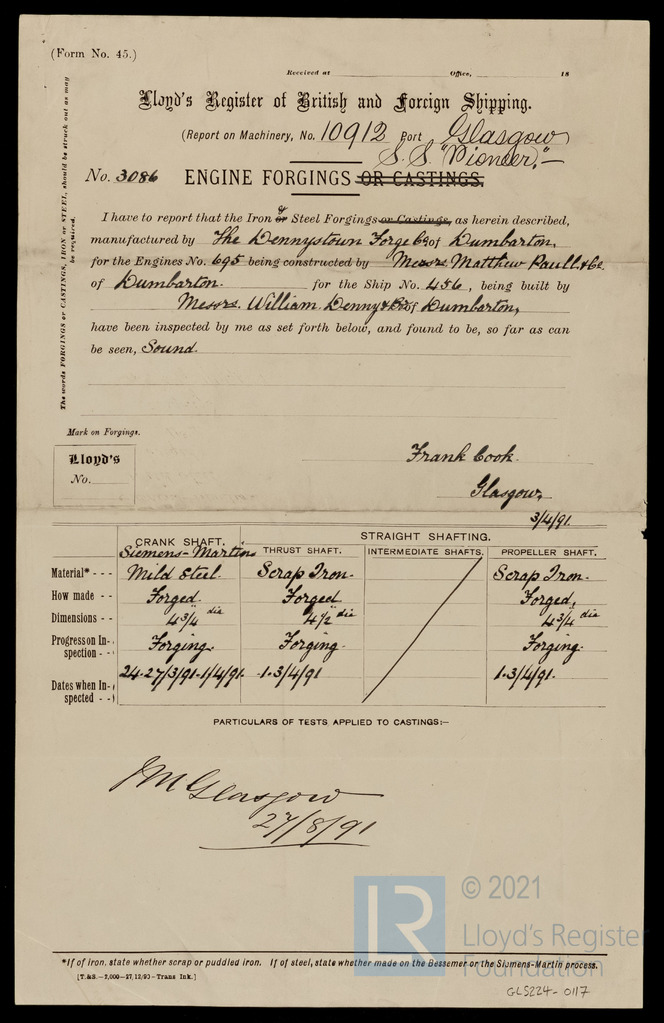 (Form No. 45.)
Received at Office, 18
Lloyd's Register of British and Foreign Shipping.
(Report on Machinery, No. 10912 Port Glasgow
S.S. "Pioneer," –
No. 3086 ENGINE FORGINGS OR CASTINGS.
The words FORGINGS or CASTINGS, IRON or STEEL, should be struck out as may be required.
I have to report that the Iron & or Steel Forgings or Castings, as herein described,
manufactured by The Dennystown Forge Co of Dumbarton,
for the Engines No. 695 being constructed by Messrs Matthew Paull & Co.
of Dumbarton. for the Ship No. 456, being built by
Messrs. William Denny & Bros of Dumbarton,
have been inspected by me as set forth below, and found to be, so far as can
be seen, Sound.
Mark on Forgings.
Lloyd's
No.
Frank Cook.
Glasgow,
3/4/91
CRANK SHAFT. STRAIGHT SHAFTING.
Siemens-Martins THRUST SHAFT. INTERMEDIATE SHAFTS. PROPELLER SHAFT.
Material* - - - Mild Steel. Scrap Iron. Scrap Iron.
How made - - Forged. Forged Forged,
Dimensions - - 4¾" dia 4½" dia 4¾" dia
Progress on Inspection - - Forging. Forging. Forging.
Dates when Inspected - - 24-27/3/91-1/4/91. 1.3/4/91 1.3/4/91.
PARTICULARS OF TESTS APPLIED TO CASTINGS:–
Glasgow
27/8/91
© 2021
LR
Lloyd's Register
Foundation
*If of iron, state whether scrap or puddled iron. If of steel, state whether made on the Bessemer or the Siemens-Martin process.
[T.&S.–2,000–27/12/90–Trans Ink.]
GLS224-0117